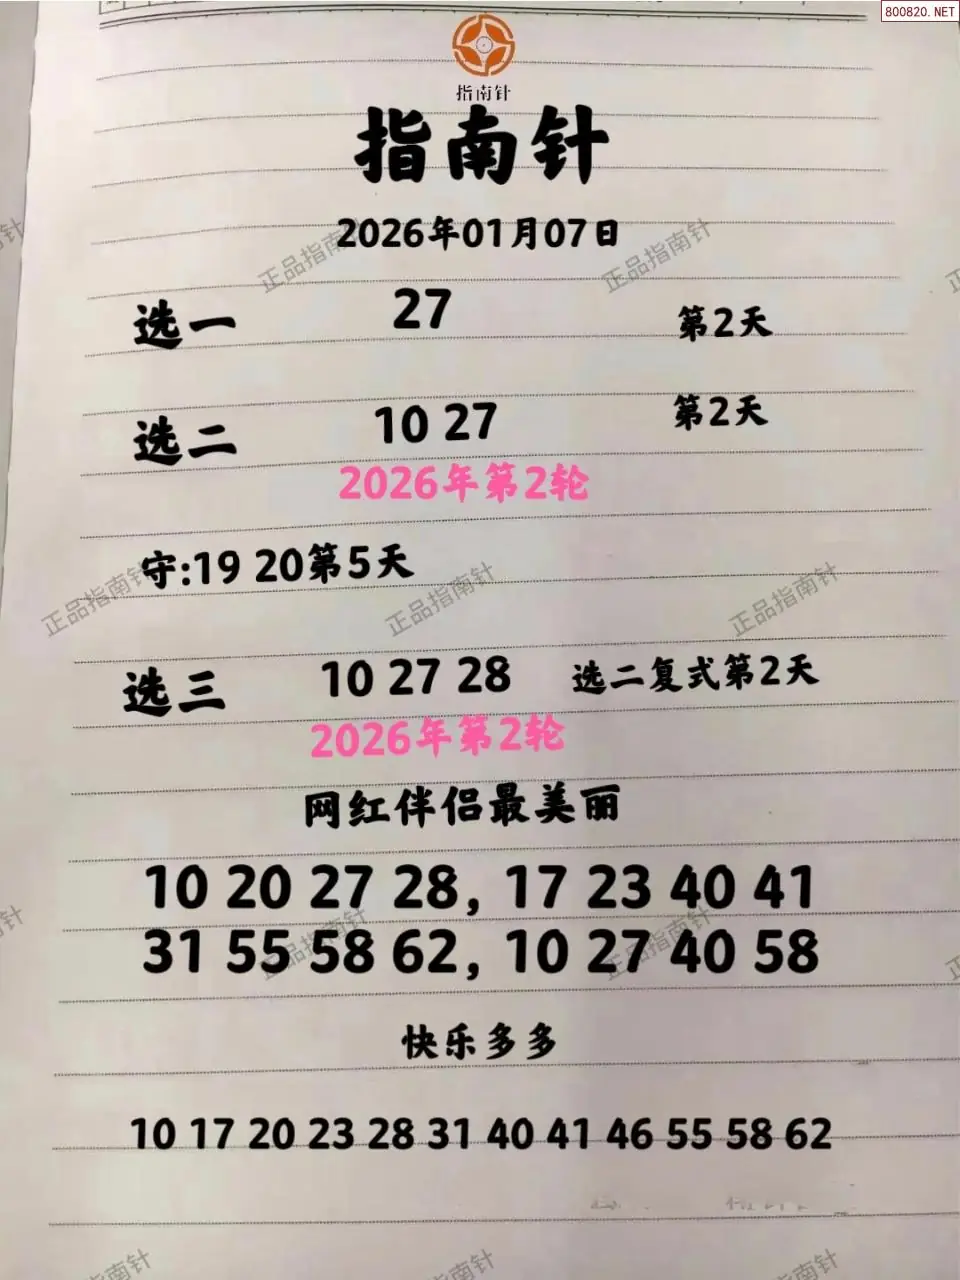 800820.NET
指南针
指南针
2026年01月07日
选一 27 第2天
选二 10 27 第2天
2026年第2轮
守:19 20第5天
选三 10 27 28 选二复式第2天
2026年第2轮
网红伴侣最美丽
10 20 27 28, 17 23 40 41
31 55 58 62, 10 27 40 58
快乐多多
10 17 20 23 28 31 40 41 46 55 58 62
正品指南针
正品指南针
正品指南针
正品指南针
正品指南针
正品指南针
正品指南针
正品指南针
正品指南针
正品指南针